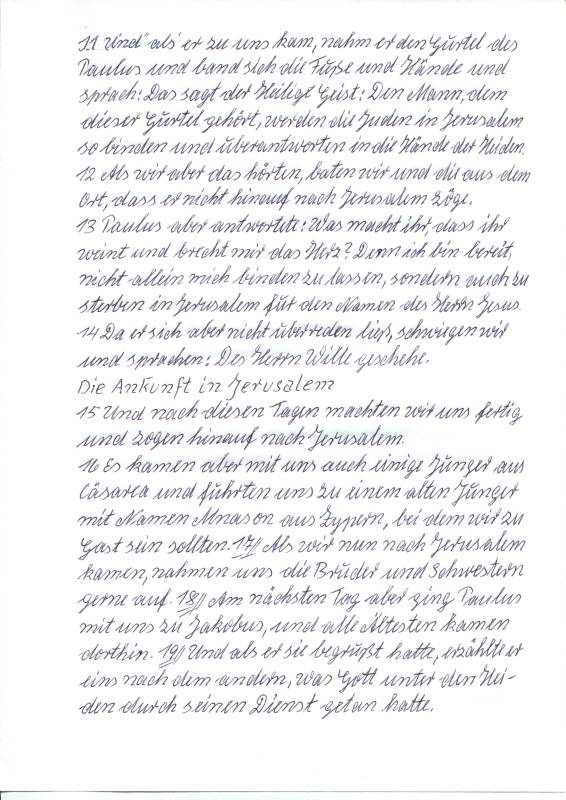 11 Und als er zu uns kam, nahm er den Gürtel des
Paulus und band sich die Füße und Hände und
sprach: Das sagt der Heilige Geist: Den Mann, dem
dieser Gürtel gehört, werden die Juden in Jerusalem
so binden und überantworten in die Hände der Heiden.
12 Als wir aber das hörten, baten wir und die aus dem
Ort, dass er nicht hinauf nach Jerusalem zöge.
13 Paulus aber antwortete: Was macht ihr, dass ihr
weint und brecht mir das Herz? Denn ich bin bereit,
nicht allein mich binden zu lassen, sondern auch zu
sterben in Jerusalem für den Namen des Herrn Jesus.
14 Da er sich aber nicht überreden ließ, schwiegen wir
und sprachen: Des Herrn Wille geschehe.
Die Ankunft in Jerusalem
15 Und nach diesen Tagen machten wir uns fertig
und zogen hinauf nach Jerusalem.
16 Es kamen aber mit uns auch einige Jünger aus
Cäsarea und führten uns zu einem alten Jünger
mit Namen Mnason aus Zypern, bei dem wir zu
Gast sein sollten. 17// Als wir nun nach Jerusalem
kamen, nahmen uns die Brüder und Schwestern
gerne auf. 18// Am nächsten Tag aber ging Paulus
mit uns zu Jakobus, und alle Ältesten kamen
dorthin. 19// Und als er sie begrüßt hatte, erzählte er
eins nach dem andern, was Gott unter den Hei-
den durch seinen Dienst getan hatte.